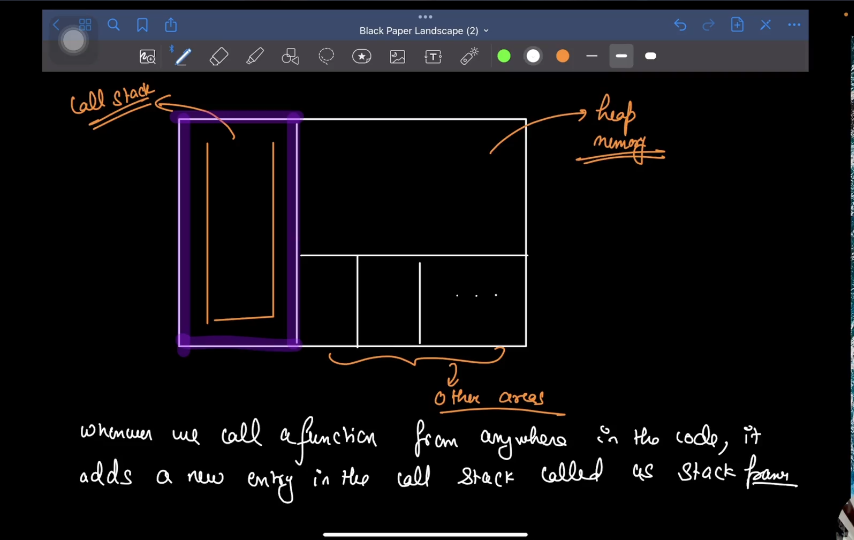 Black Paper Landscape (2)
Call stack
heap
memory
other areas
whenever we call a function from anywhere in the code, it
adds a new entry in the call stack called as stack frame